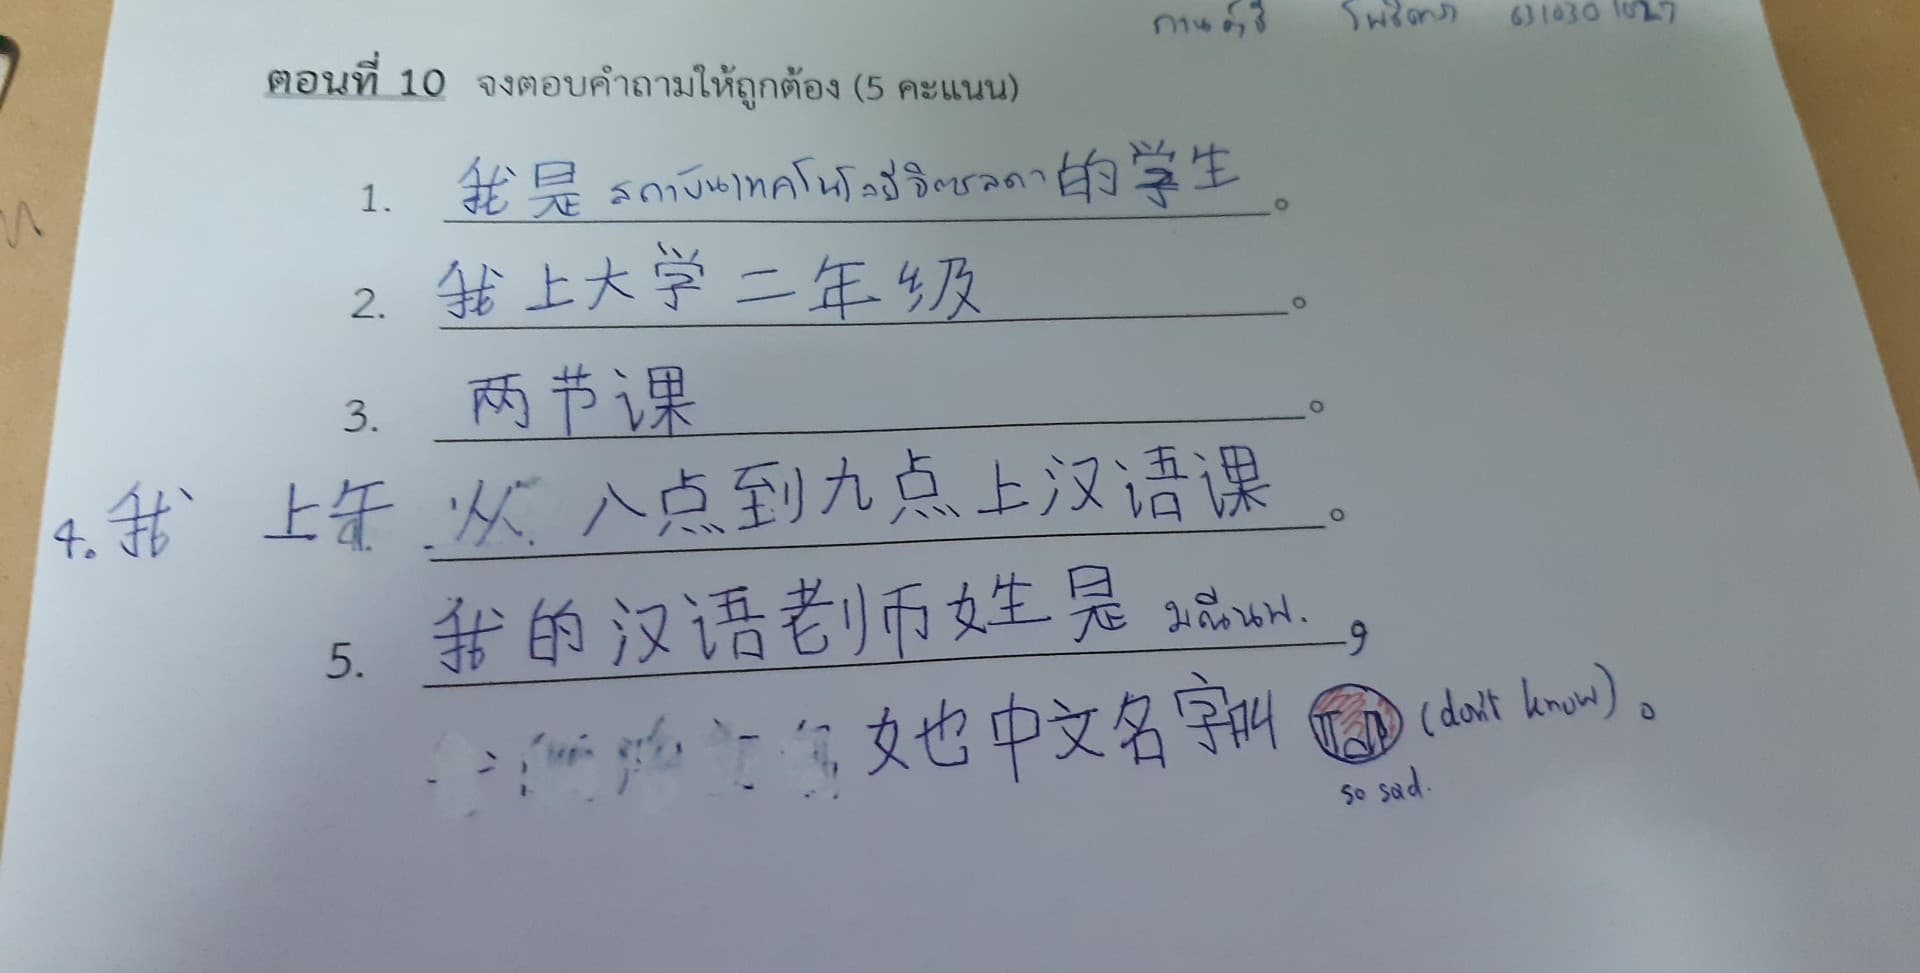 โพธิ์ตาก 6310301027
ตอนที่ 10 จงตอบคำถามให้ถูกต้อง (5 คะแนน)
1. 我是 สถาบันเทคโนโลยีจิตรลดา 的学生。
2. 我上大学二年级。
3. 两节课。
4. 我 上午 从 八点到九点上汉语课。
5. 我的汉语老师姓是 มณีนพ.,
她中文名字叫 (don't know)。
so sad.